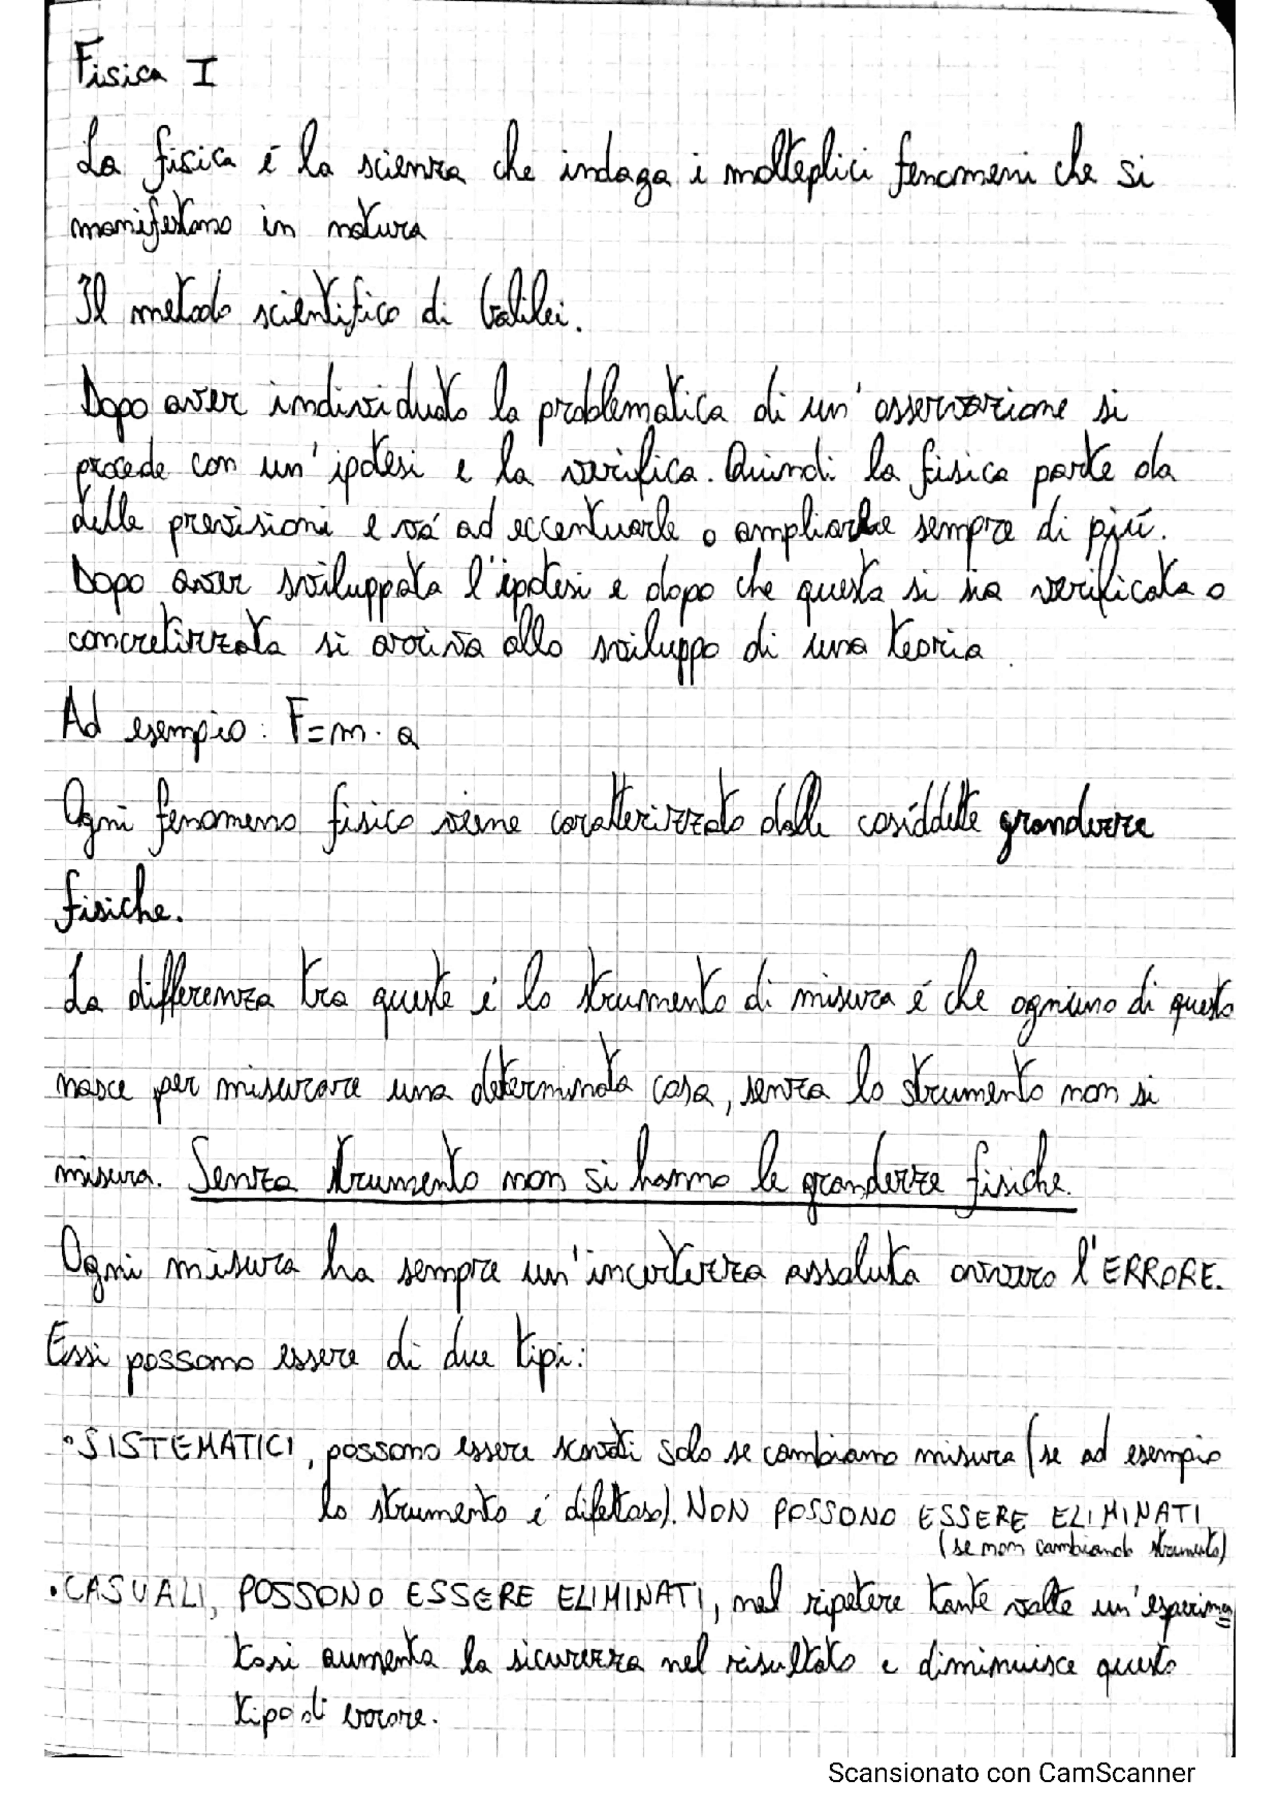 Fisica I
La fisica é la scienza che indaga i molteplici fenomeni che si
manifestano in natura
Il metodo scientifico di Galilei.
Dopo aver individuato la problematica di un'osservazione si
procede con un'ipotesi e la verifica. Quindi la fisica parte da
delle previsioni e vá ad eccentuarle o ampliarle sempre di piú.
Dopo aver sviluppata l'ipotesi e dopo che questa si sia verificata o
concretizzata si arriva allo sviluppo di una teoria.
Ad esempio: F=m·a
Ogni fenomeno fisico viene caratterizzato dalle cosiddette grandezze
fisiche.
La differenza tra queste é lo strumento di misura é che ogniuno di questo
nasce per misurare una determinata cosa, senza lo strumento non si
misura. Senza strumento non si hanno le grandezze fisiche.
Ogni misura ha sempre un'incertezza assoluta ovvero l'ERRORE.
Essi possono essere di due tipi:
• SISTEMATICI, possono essere scovati solo se cambiamo misura (se ad esempio
lo strumento é difettoso). NON POSSONO ESSERE ELIMINATI
(se non cambiando strumento)
• CASUALI, POSSONO ESSERE ELIMINATI, nel ripetere tante volte un'esperimen=
tosi aumenta la sicurezza nel risultato e diminuisce questo
tipo di errore.
Scansionato con CamScanner